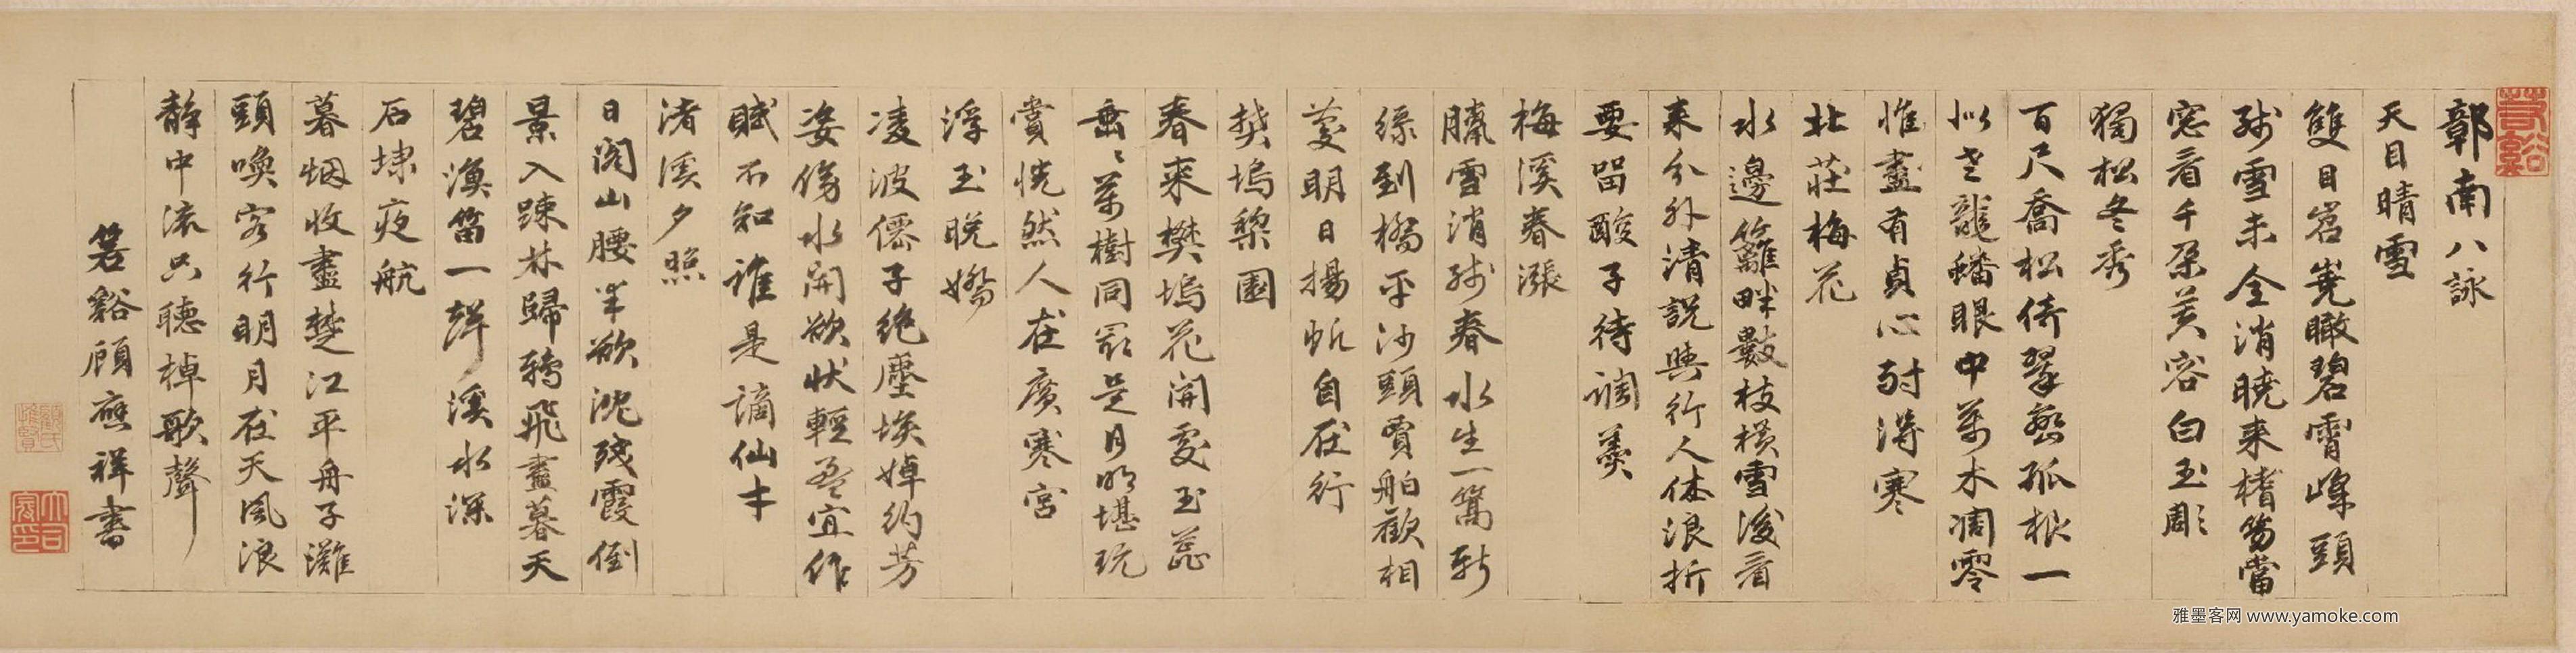 鄣南八詠
天目晴雪
雙目岧嶤瞰碧霄峰頭
殘雪未全消曉来樯笏當
窓看千朶芙容白玉彫
獨松冬秀
百尺喬松倚翠巒孤根一
似老龍蟠眼中萬木凋零
惟盡有貞心耐得寒
北莊梅花
水邊籬畔數枝横雪後看
来分外清説與行人休浪折
要留酸子待調羹
梅溪春漲
臈雪消殘春水生一篙新
緑到橋平沙頭賈舶歡相
慶明日揚帆自在行
樊塢梨園
春来樊塢花開處玉蕊
垂〻萬樹同最是月明堪玩
賞恍然人在廣寒宮
浮玉晚嬌
凌波僊子絶塵埃婥約芳
姿傍水開欲状輕盈宜作
賦不知誰是謫仙才
渚溪夕照
日閣山腰半欲沈殘霞倒
景入踈林歸鴉飛盡暮天
碧漁笛一聲溪水深
石埭夜航
暮烟收盡楚江平舟子灘
頭喚客行明月在天風浪
静中流只聽棹歌聲
箬谿顧應祥書
雅墨客网 www.yamoke.com